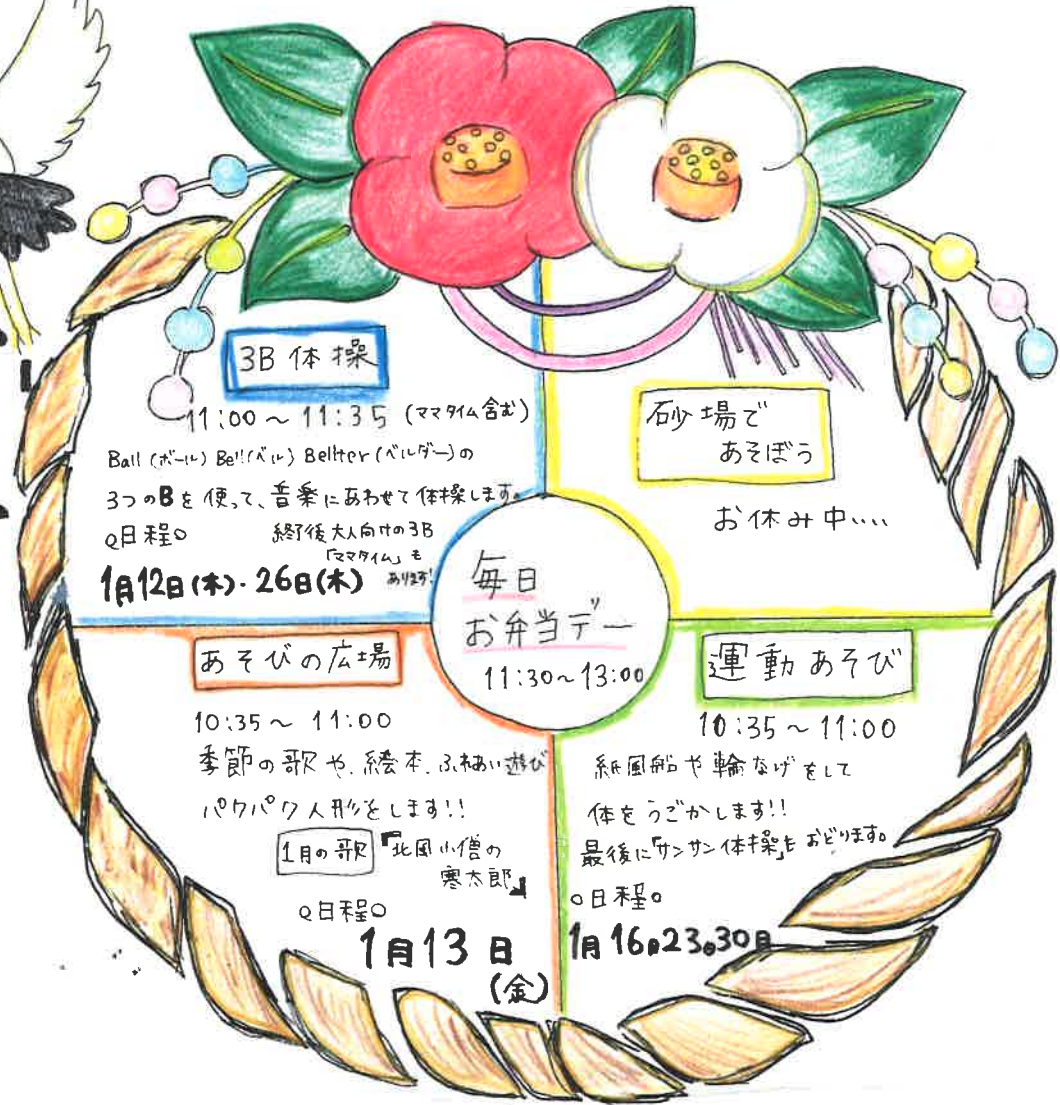 3B 体操
11:00 ~ 11:35 (ママタイム含む)
Ball (ボール) Bell (ベル) Bellter (ベルダー) の
3つのBを使って、音楽にあわせて体操します。
○日程○
終了後大人向けの3B
「ママタイム」も
あります!
1月12日(木)・26日(木)
砂場で
あそぼう
お休み中....
毎日
お弁当デー
11:30~13:00
あそびの広場
10:35~ 11:00
季節の歌や、絵本、ふれあい遊び
パクパク人形をします!!
1月の歌
『北風小僧の
寒太郎』
○日程○
1月13日
(金)
運動あそび
10:35~11:00
紙風船や輪なげをして
体をうごかします!!
最後に「サンサン体操」もおどります。
○日程○
1月16日23日30日